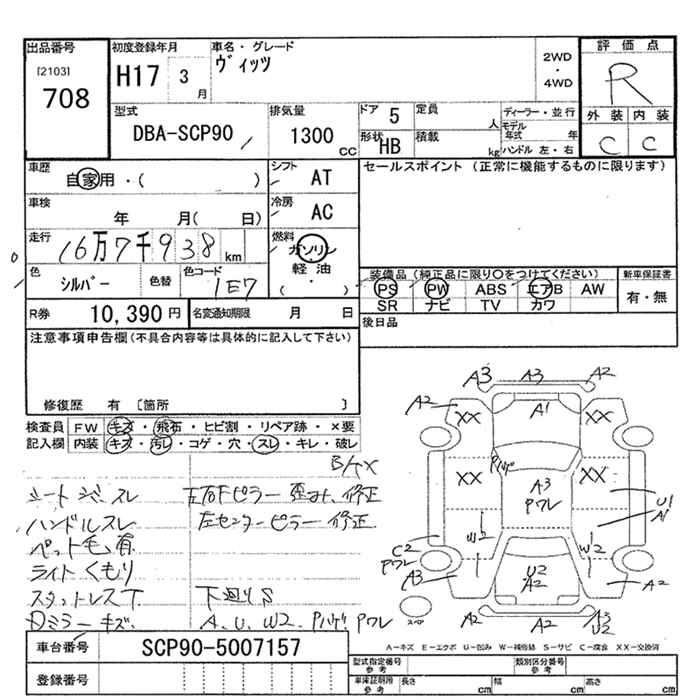 出品番号 初度登録年月 車名・グレード 2WD・4WD 評価点
[2103] H17 3月 ヴィッツ R
708
型式 排気量 ドア 5 定員 人 ディーラー・並行 外装 内装
DBA-SCP90 1300cc 形状 HB 積載 kg モデル年式 年 C C
ハンドル 左・右
車歴 自家用・( ) シフト AT セールスポイント (正常に機能するものに限ります)
車検 年 月( 日) 冷房 AC
走行 16万7千938km 燃料 ガソリン
軽油
( ・ )
色 シルバー 色替 色コード 1E7
装備品 (純正品に限り○をつけてください) 新車保証書
PS PW ABS エアB AW 有・無
SR ナビ TV カワ
R券 10,390円 名変通知期限 月 日 後日品
注意事項申告欄(不具合内容等は具体的に記入して下さい)
修復歴 有 [箇所 ]
検査員 FW キズ・飛石・ヒビ割・リペア跡・×要
記入欄 内装 キズ・汚レ・コゲ・穴・スレ・キレ・破レ
シート スレ 左右Fピラー 歪み、修正
ハンドルスレ 左センターピラー 修正
ペット毛有
ライトくもり
スタットレスT 下廻りS
Dミラーキズ A、U、W2、Pハゲ Pワレ
A3 A3 A2
A2 XX A1 XX A2
Pハゲ
XX A3 XX
Pワレ U1
A1
W2 W2
C2
Pワレ
A3 U2 A2
A2
スペア A2 A2 A3
U2
A-キズ E-エクボ U-凹み W-補修跡 S-サビ C-腐食 XX-交換済
車台番号 SCP90-5007157
登録番号
型式指定番号 参考 類別区分番号 参考
車庫証明用 参考 長さ cm 幅 cm 高さ cm